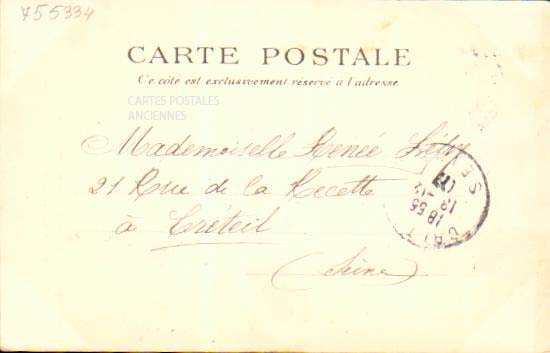 755334
CARTE POSTALE
Ce côté est exclusivement réservé à l'adresse
CARTES POSTALES
ANCIENNES
Mademoiselle Renée
21 Rue de la Recette
à Créteil
(Seine)
18 55